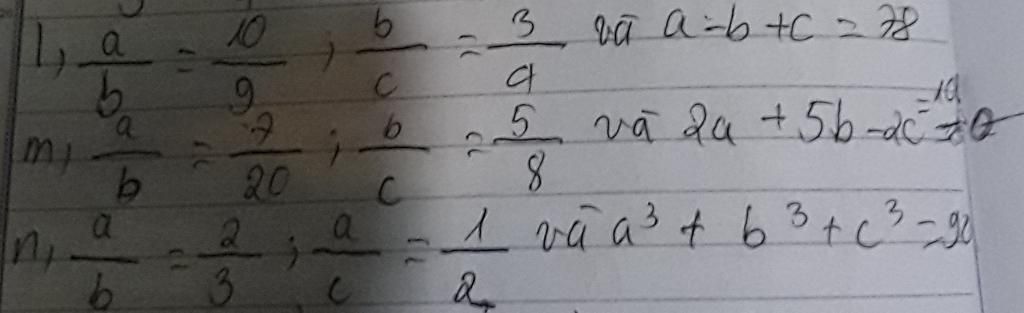 l, a/b = 10/9 ; b/c = 3/4 và a - b + c = 78
m, a/b = 7/20 ; b/c = 5/8 và 2a + 5b - 2c =
n, a/b = 2/3 ; a/c = 1/2 và a³ + b³ + c³ =